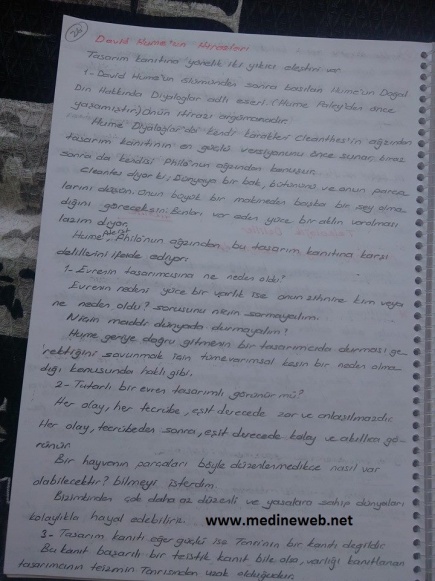 26
David Hume'un İtirazları
Tasarım kanıtına yönelik iki yıkıcı eleştiri var
1- David Hume'un ölümünden sonra basılan Hume'un Doğal
Din Hakkında Diyaloglar adlı eseri. (Hume Paley'den önce
yaşamıştır) Onun itirazı argümanadır.
Hume Diyaloglar'da kendi karakteri Cleanthes'in ağzından
tasarım kanıtının en güçlü versiyonunu önce sunar, biraz
sonra da kendisi Philo'nun ağzından konuşur.
Cleantes diyor ki; Dünyaya bir bak, bütününü ve onun parça
larını düşün. Onun büyük bir makineden başka bir şey olma
dığını göreceksin. Bunları var eden yüce bir aklın varolması
lazım diyor.
Hume Philo'nun ağzından bu tasarım kanıtına karşı
delillerini ifade ediyor:
1- Evrenin tasarımcısına ne neden oldu?
Evrenin nedeni yüce bir varlık ise onun zihnine kim veya
ne neden oldu? sorusunu niçin sormayalım.
Niçin maddi dünyada durmayalım?
Hume geriye doğru gitmenin bir tasarımcıda durması ge
rektiğini savunmak için tümevarımsal kesin bir neden olma
dığı konusunda haklı gibi.
2- Tutarlı bir evren tasarımlı görünür mü?
Her olay, her tecrübe, eşit derecede zor ve anlaşılmazdır.
Her olay, tecrübeden sonra, eşit derecede kolay ve akıllıca gö-
rünür.
Bir hayvanın parçaları böyle düzenlenmedikçe nasıl var
olabilecektir? bilmeyi isterdim.
Bizimkinden çok daha az düzenli ve yasalara sahip dünyaları
kolaylıkla hayal edebiliriz.
www.medineweb.net
3- Tasarım kanıtı eğer güçlü ise Tanrı'nın bir kanıtı değildir.
Bu kanıt başarılı bir teistik kanıt bile olsa, varlığı kanıtlanan
tasarımcının teizmin Tanrısından uzak olduğudur.